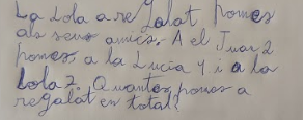 La Lola a re Galat pomes
als seus amics. A el Juan 2
pomes, a la Lucia 4 i a la
Lola 7. Quantes pomes a
regalat en total?